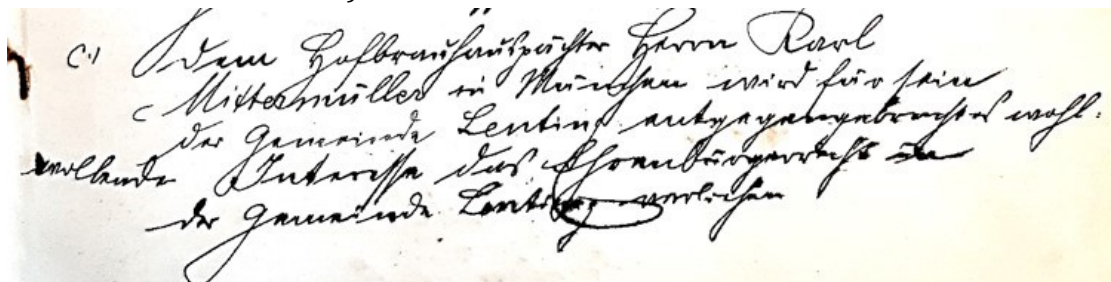 c.) Dem Hofbräuhauspächter Herrn Karl
Mittermüller in München wird für sein
der Gemeinde Lenting entgegengebrachtes wohl-
wollende Interesse das Ehrenbürgerrecht in
der Gemeinde Lenting verliehen